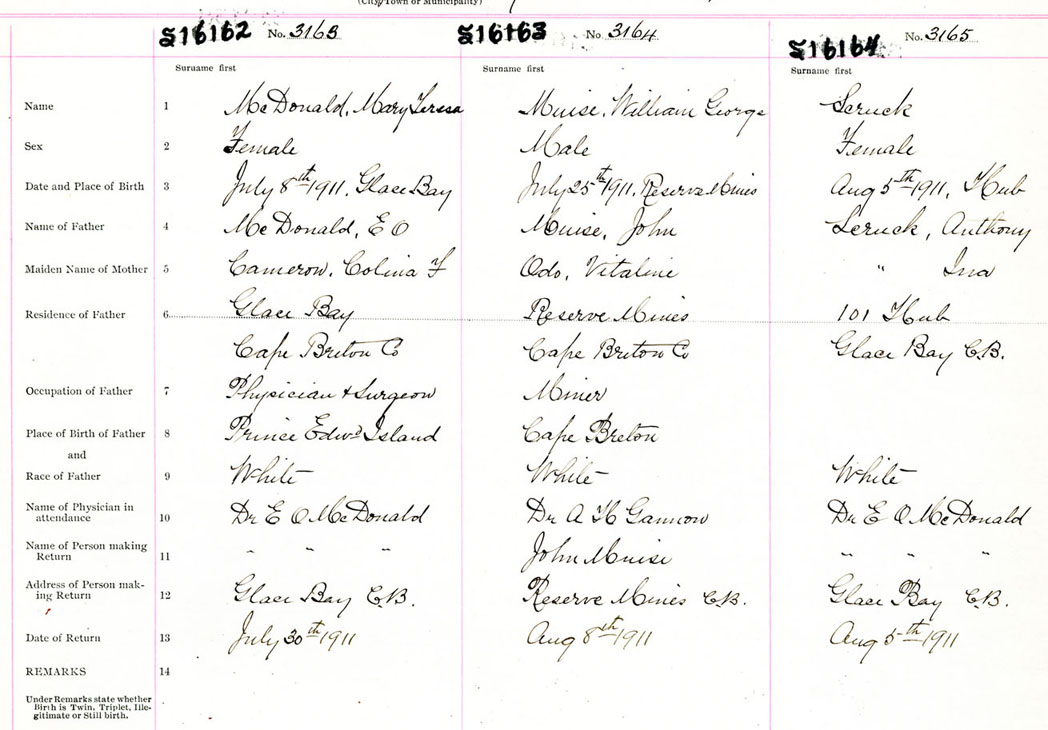 (City, Town or Municipality)
S16162 No. 3163 S16163 No. 3164 S16164 No. 3165
Surname first Surname first Surname first
Name 1 McDonald, Mary Teresa Muise, William George Seruck
Sex 2 Female Male Female
Date and Place of Birth 3 July 8th 1911, Glace Bay July 25th 1911, Reserve Mines Aug 5th 1911, Hub
Name of Father 4 McDonald, E O Muise, John Seruck, Anthony
Maiden Name of Mother 5 Cameron, Colina F Odo, Vitaline " Ina
Residence of Father 6 Glace Bay Reserve Mines 101 Hub
Cape Breton Co Cape Breton Co Glace Bay C.B.
Occupation of Father 7 Physician & Surgeon Miner
Place of Birth of Father 8 Prince Edwd Island Cape Breton
and
Race of Father 9 White White White
Name of Physician in
attendance 10 Dr E O McDonald Dr A H Gannow Dr E O McDonald
Name of Person making
Return 11 " " " John Muise " " "
Address of Person mak-
ing Return 12 Glace Bay C.B. Reserve Mines C.B. Glace Bay C.B.
Date of Return 13 July 30th 1911 Aug 8th 1911 Aug 5th 1911
REMARKS 14
Under Remarks state whether
Birth is Twin, Triplet, Ille-
gitimate or Still birth.